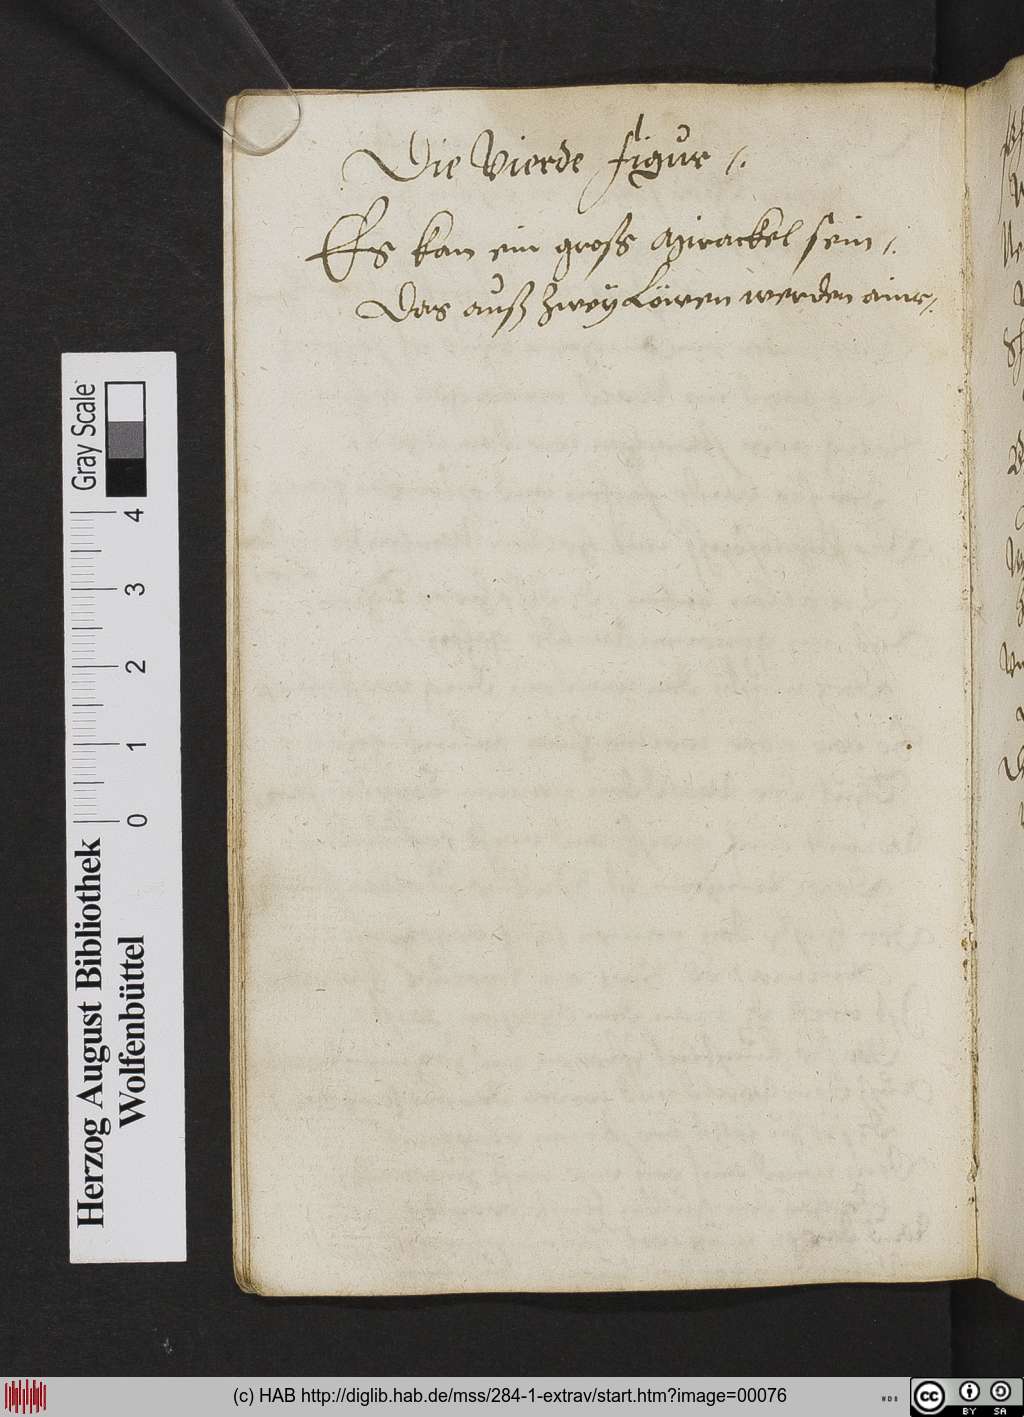 Die Vierde figur
Es kan ein groß Mirackel sein
Das auß zwey Löwen werden ainr
Gray Scale
4
3
2
1
0
Herzog August Bibliothek
Wolfenbüttel
(c) HAB http://diglib.hab.de/mss/284-1-extrav/start.htm?image=00076
WDB
cc BY SA